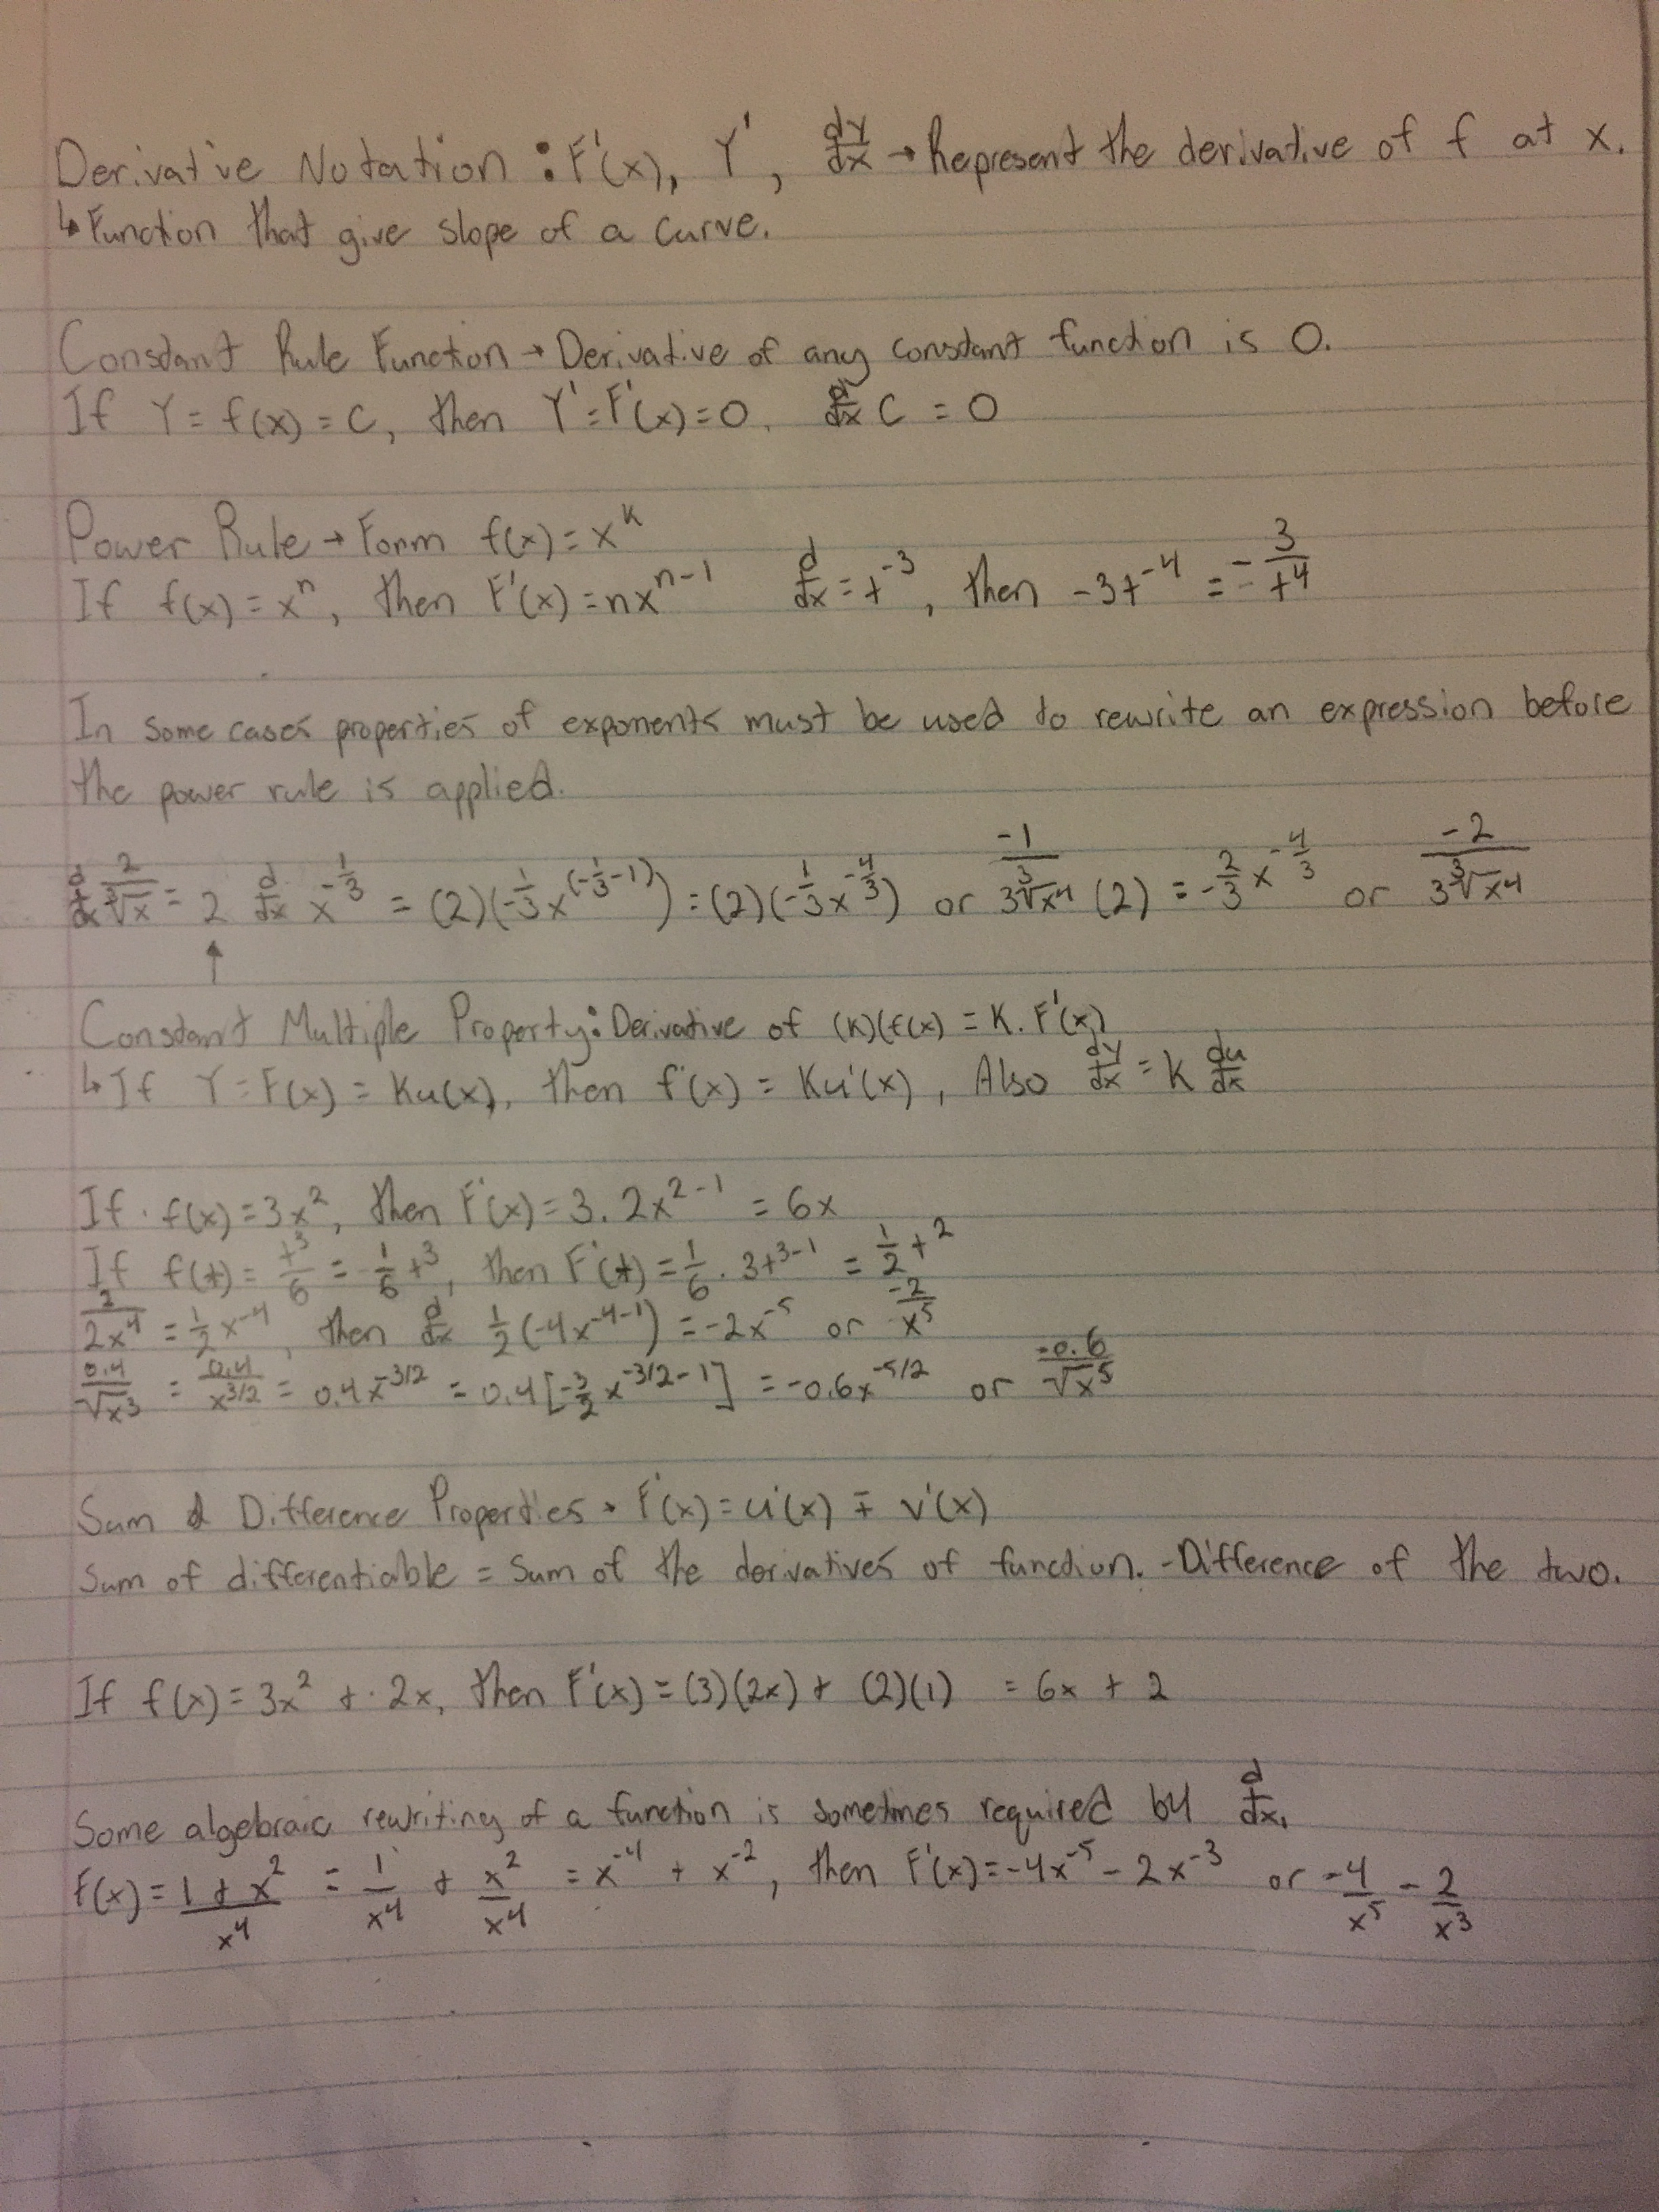 Derivative Notation : F'(x), Y', dy/dx → Represent the derivative of f at x.
↳ Function that give slope of a curve.
Constant Rule Function → Derivative of any constant function is 0.
If Y = f(x) = C, then Y' = F'(x) = 0, d/dx C = 0
Power Rule → Form f(x) = x^k
If f(x) = x^n, then F'(x) = nx^(n-1) d/dx = t^-3, then -3t^-4 = - 3/t^4
In some cases properties of exponents must be used to rewrite an expression before
the power rule is applied.
d/dx 2/∛x = 2 d/dx x^(-1/3) = (2)(-1/3 x^(-1/3 -1)) = (2)(-1/3 x^(-4/3)) or -1/(3∛x^4) (2) = -2/3 x^(-4/3) or -2/(3∛x^4)
↑
Constant Multiple Property: Derivative of (K)(f(x) = K . F'(x)
↳ If Y = F(x) = Ku(x), then f'(x) = Ku'(x), Also dy/dx = K du/dx
If f(x) = 3x^2, then F'(x) = 3 . 2x^(2-1) = 6x
If f(t) = t^3/6 = 1/6 t^3, then F'(t) = 1/6 . 3t^(3-1) = 1/2 t^2
/2x^4 = 1/2 x^-4, then d/dx 1/2 (-4x^(-4-1)) = -2x^-5 or -2/x^5
0.4/√x^3 = 0.4/x^(3/2) = 0.4x^(-3/2) = 0.4[-3/2 x^(-3/2-1)] = -0.6x^(-5/2) or -0.6/√x^5
Sum & Difference Properties → F'(x) = u'(x) ∓ v'(x)
Sum of differentiable = Sum of the derivatives of function. - Difference of the two.
If f(x) = 3x^2 + 2x, then F'(x) = (3)(2x) + (2)(1) = 6x + 2
Some algebraic rewriting of a function is sometimes required by d/dx.
F(x) = (1 + x^2)/x^4 = 1/x^4 + x^2/x^4 = x^-4 + x^-2, then F'(x) = -4x^-5 - 2x^-3 or -4/x^5 - 2/x^3